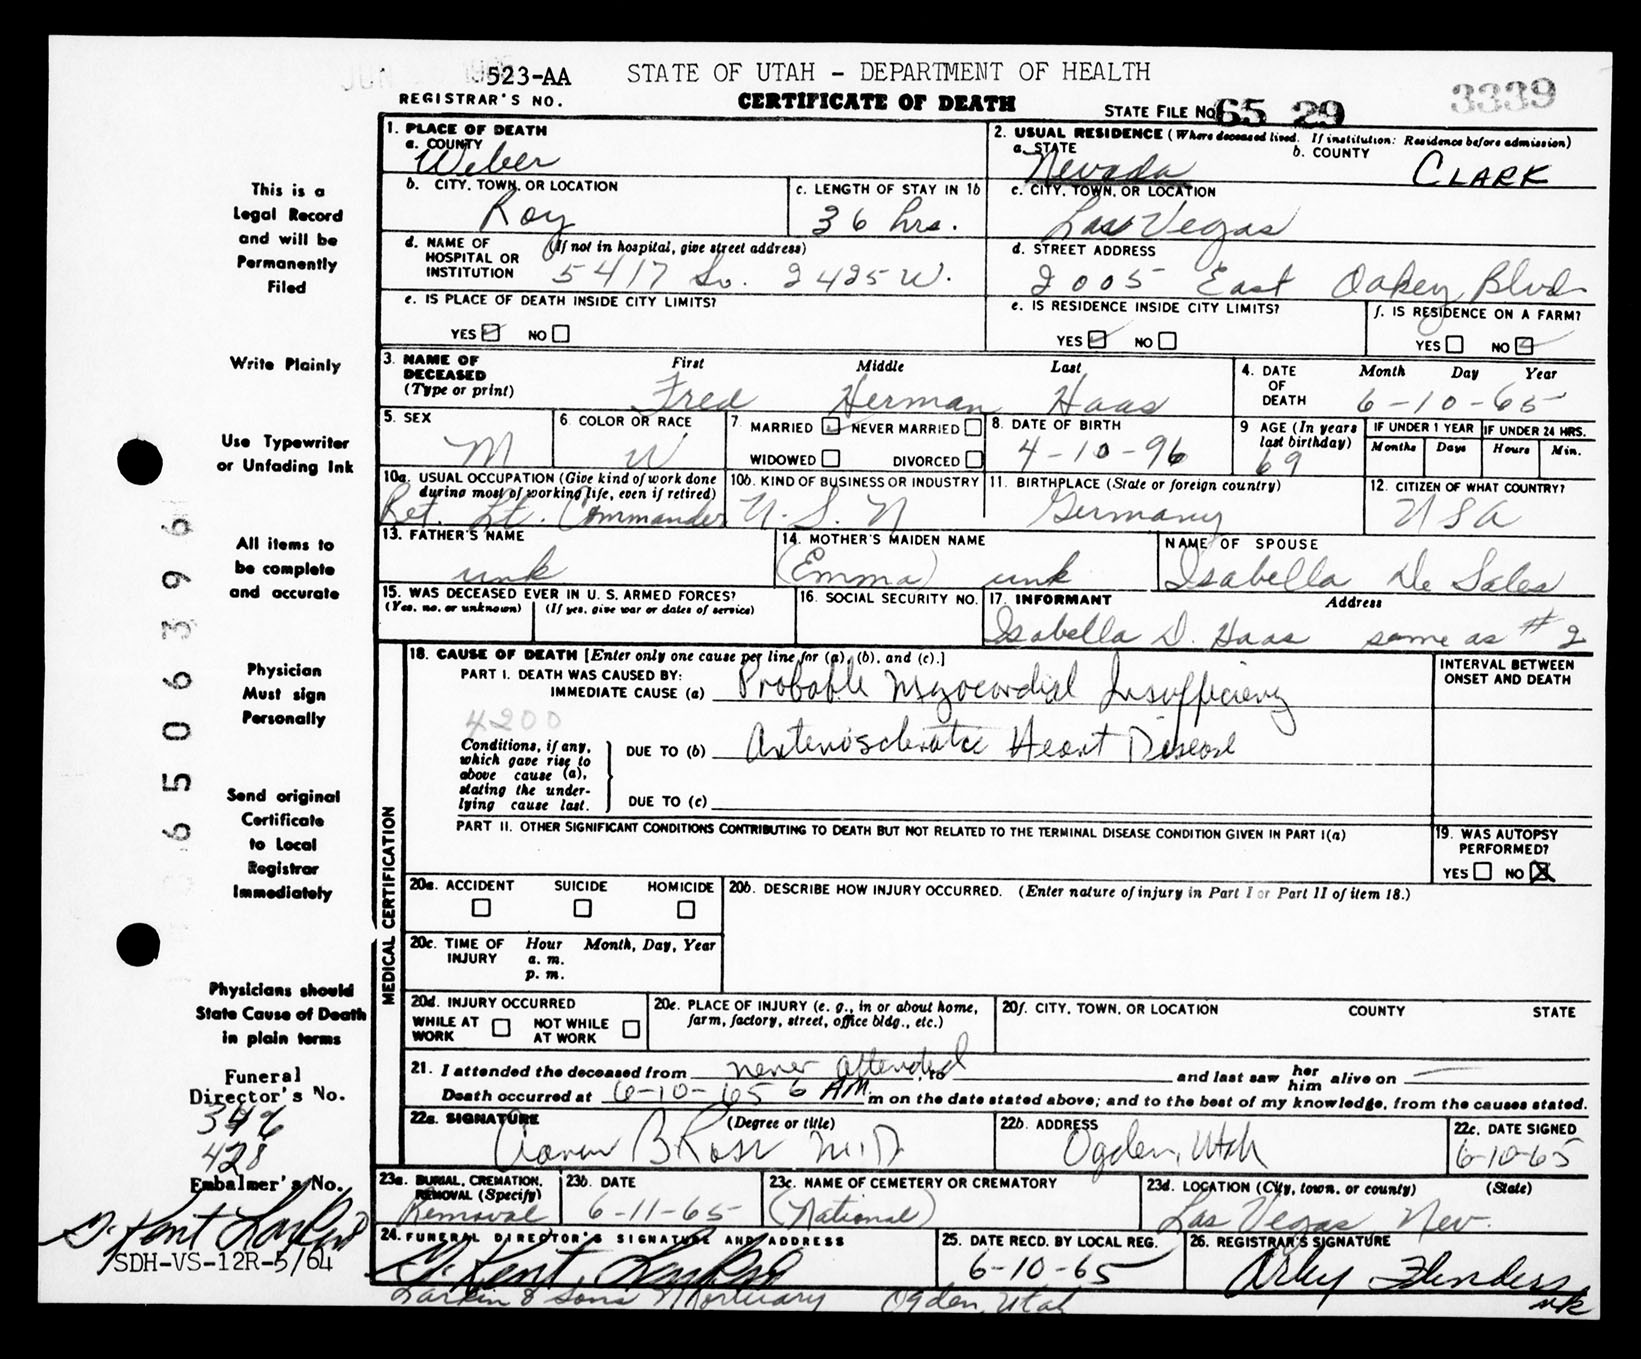 523-AA STATE OF UTAH - DEPARTMENT OF HEALTH 3339
REGISTRAR'S NO. CERTIFICATE OF DEATH STATE FILE NO. 65 29
1. PLACE OF DEATH
a. COUNTY
Weber
2. USUAL RESIDENCE (Where deceased lived. If institution: Residence before admission)
a. STATE b. COUNTY
Nevada CLARK
b. CITY, TOWN, OR LOCATION
Roy
c. LENGTH OF STAY IN 1b
36 hrs.
c. CITY, TOWN, OR LOCATION
Las Vegas
d. NAME OF (If not in hospital, give street address)
HOSPITAL OR
INSTITUTION
5417 So. 2425 W.
d. STREET ADDRESS
2005 East Oakey Blvd
e. IS PLACE OF DEATH INSIDE CITY LIMITS?
YES NO
e. IS RESIDENCE INSIDE CITY LIMITS?
YES NO
f. IS RESIDENCE ON A FARM?
YES NO
3. NAME OF DECEASED
(Type or print)
First Middle Last
Fred Herman Haas
4. DATE OF DEATH
Month Day Year
6-10-65
5. SEX
M
6. COLOR OR RACE
W
7. MARRIED NEVER MARRIED
WIDOWED DIVORCED
8. DATE OF BIRTH
4-10-96
9 AGE (In years last birthday)
69
IF UNDER 1 YEAR
Months Days
IF UNDER 24 HRS.
Hours Min.
10a. USUAL OCCUPATION (Give kind of work done
during most of working life, even if retired)
Ret. Lt. Commander
10b. KIND OF BUSINESS OR INDUSTRY
U.S.N
11. BIRTHPLACE (State or foreign country)
Germany
12. CITIZEN OF WHAT COUNTRY?
USA
13. FATHER'S NAME
unk
14. MOTHER'S MAIDEN NAME
(Emma) unk
NAME OF SPOUSE
Isabella De Sales
15. WAS DECEASED EVER IN U. S. ARMED FORCES?
(Yes, no, or unknown) (If yes, give war or dates of service)
16. SOCIAL SECURITY NO.
17. INFORMANT Address
Isabella D. Haas same as #2
MEDICAL CERTIFICATION
18. CAUSE OF DEATH [Enter only one cause per line for (a), (b), and (c).]
PART I. DEATH WAS CAUSED BY:
IMMEDIATE CAUSE (a) Probable Myocardial Insufficiency
4200
Conditions, if any,
which gave rise to
above cause (a),
stating the under-
lying cause last.
DUE TO (b) Arteriosclerotic Heart Disease
DUE TO (c)
INTERVAL BETWEEN
ONSET AND DEATH
PART II. OTHER SIGNIFICANT CONDITIONS CONTRIBUTING TO DEATH BUT NOT RELATED TO THE TERMINAL DISEASE CONDITION GIVEN IN PART I(a)
19. WAS AUTOPSY
PERFORMED?
YES NO X
20a. ACCIDENT SUICIDE HOMICIDE
20b. DESCRIBE HOW INJURY OCCURRED. (Enter nature of injury in Part I or Part II of item 18.)
20c. TIME OF INJURY
Hour Month, Day, Year
a. m.
p. m.
20d. INJURY OCCURRED
WHILE AT WORK NOT WHILE AT WORK
20e. PLACE OF INJURY (e. g., in or about home,
farm, factory, street, office bldg., etc.)
20f. CITY, TOWN, OR LOCATION COUNTY STATE
21. I attended the deceased from never attended to and last saw her him alive on
Death occurred at 6-10-65 6 AM m on the date stated above; and to the best of my knowledge, from the causes stated.
22a. SIGNATURE (Degree or title)
Aaron B Ross M.D
22b. ADDRESS
Ogden, Utah
22c. DATE SIGNED
6-10-65
23a. BURIAL, CREMATION,
REMOVAL (Specify)
Removal
23b. DATE
6-11-65
23c. NAME OF CEMETERY OR CREMATORY
(National)
23d. LOCATION (City, town, or county) (State)
Las Vegas, Nev.
24. FUNERAL DIRECTOR'S SIGNATURE AND ADDRESS
G. Kent Larkin
Larkin & Sons Mortuary Ogden, Utah
25. DATE RECD. BY LOCAL REG.
6-10-65
26. REGISTRAR'S SIGNATURE
Arley Flinders
This is a
Legal Record
and will be
Permanently
Filed
Write Plainly
Use Typewriter
or Unfading Ink
All items to
be complete
and accurate
Physician
Must sign
Personally
Send original
Certificate
to Local
Registrar
Immediately
Physicians should
State Cause of Death
in plain terms
Funeral
Director's No.
346
428
Embalmer's No.
G. Kent Larkin
SDH-VS-12R-5/64
6 5 0 6 3 9 6